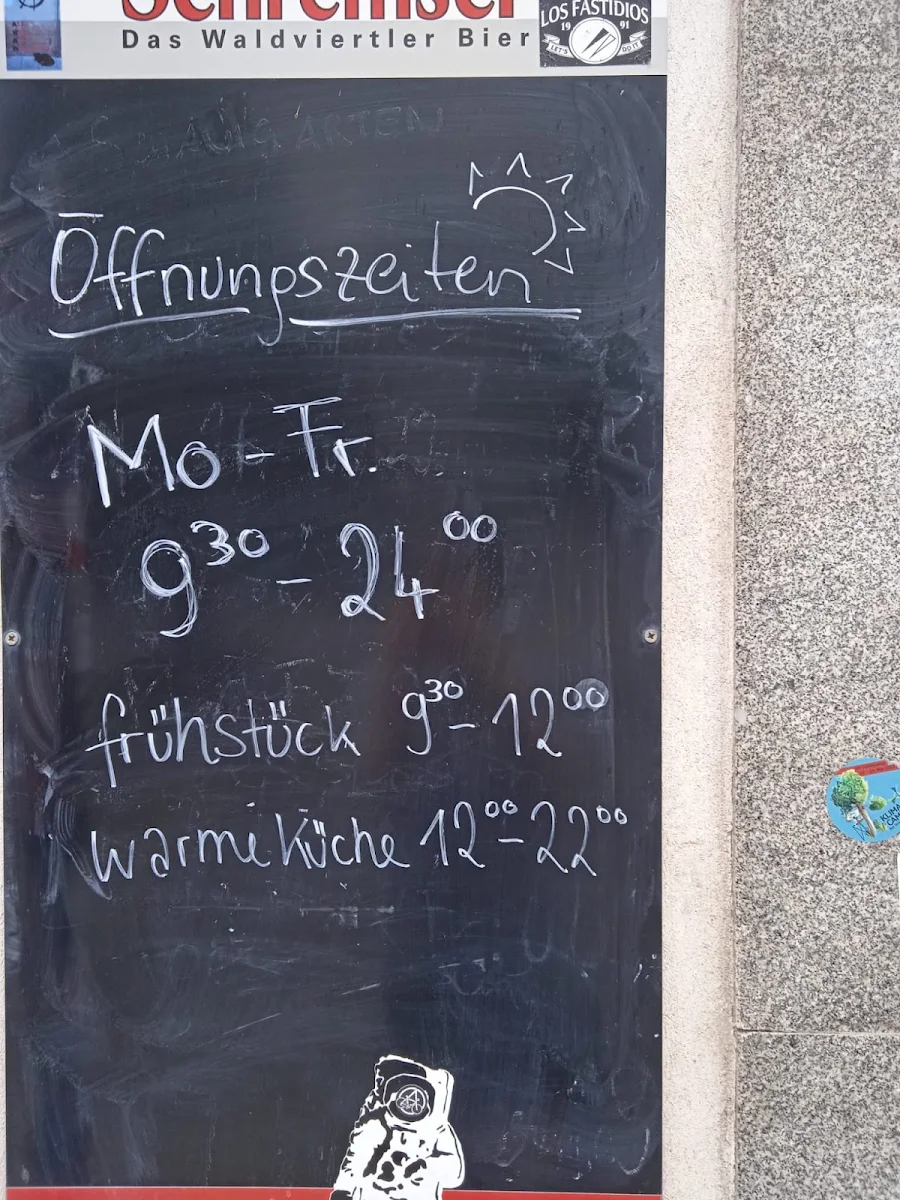 Schremser
Das Waldviertler Bier
LOS FASTIDIOS
19 91
LET'S DO IT
Öffnungszeiten
Mo - Fr.
9³⁰ - 24⁰⁰
frühstück 9³⁰ - 12⁰⁰
warme Küche 12⁰⁰ - 22⁰⁰
KLIMA